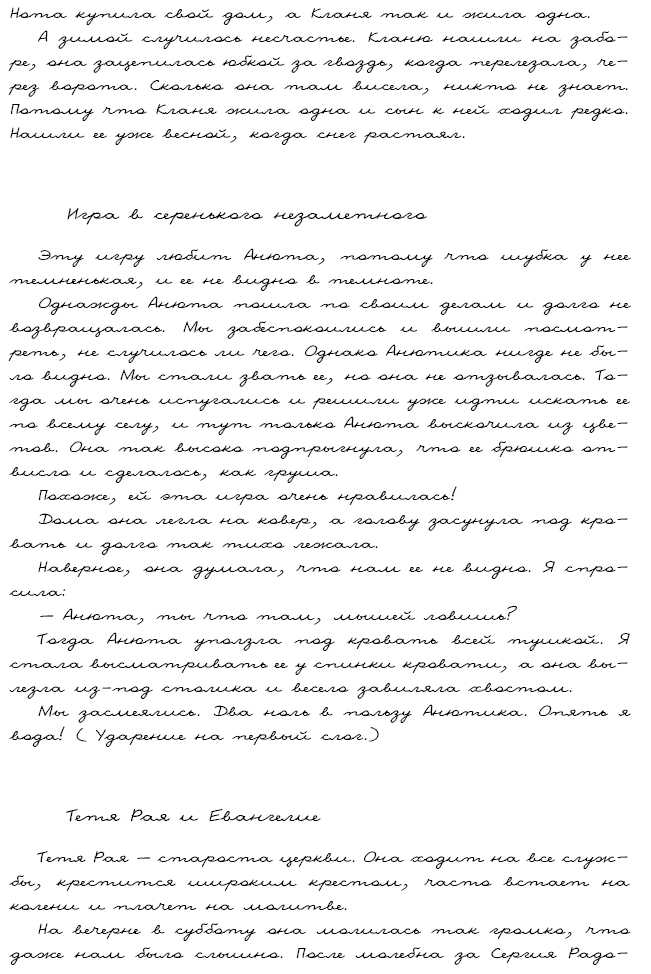 Нота купила свой дом, а Кланя так и жила одна.
А зимой случилось несчастье. Кланю нашли на забо-
ре, она зацепилась юбкой за гвоздь, когда перелезала, че-
рез ворота. Сколько она там висела, никто не знает.
Потому что Кланя жила одна и сын к ней ходил редко.
Нашли ее уже весной, когда снег растаял.
Игра в серенького незаметного
Эту игру любит Анюта, потому что шубка у нее
темненькая, и ее не видно в темноте.
Однажды Анюта пошла по своим делам и долго не
возвращалась. Мы забеспокоились и вышли посмот-
реть, не случилось ли чего. Однако Анютика нигде не бы-
ло видно. Мы стали звать ее, но она не отзывалась. То-
гда мы очень испугались и решили уже идти искать ее
по всему селу, и тут только Анюта выскочила из цве-
тов. Она так высоко подпрыгнула, что ее брюшко от-
висло и сделалось, как груша.
Похоже, ей эта игра очень нравилась!
Дома она легла на ковер, а голову засунула под кро-
вать и долго так тихо лежала.
Наверное, она думала, что нам ее не видно. Я спро-
сила:
— Анюта, ты что там, мышей ловишь?
Тогда Анюта уползла под кровать всей тушкой. Я
стала высматривать ее у спинки кровати, а она вы-
лезла из-под столика и весело завиляла хвостом.
Мы засмеялись. Два ноль в пользу Анютика. Опять я
вода! ( Ударение на первый слог.)
Тетя Рая и Евангелие
Тетя Рая — староста церкви. Она ходит на все служ-
бы, крестится широким крестом, часто встает на
колени и плачет на молитве.
На вечерне в субботу она молилась так громко, что
даже нам было слышно. После молебна за Сергия Радо-